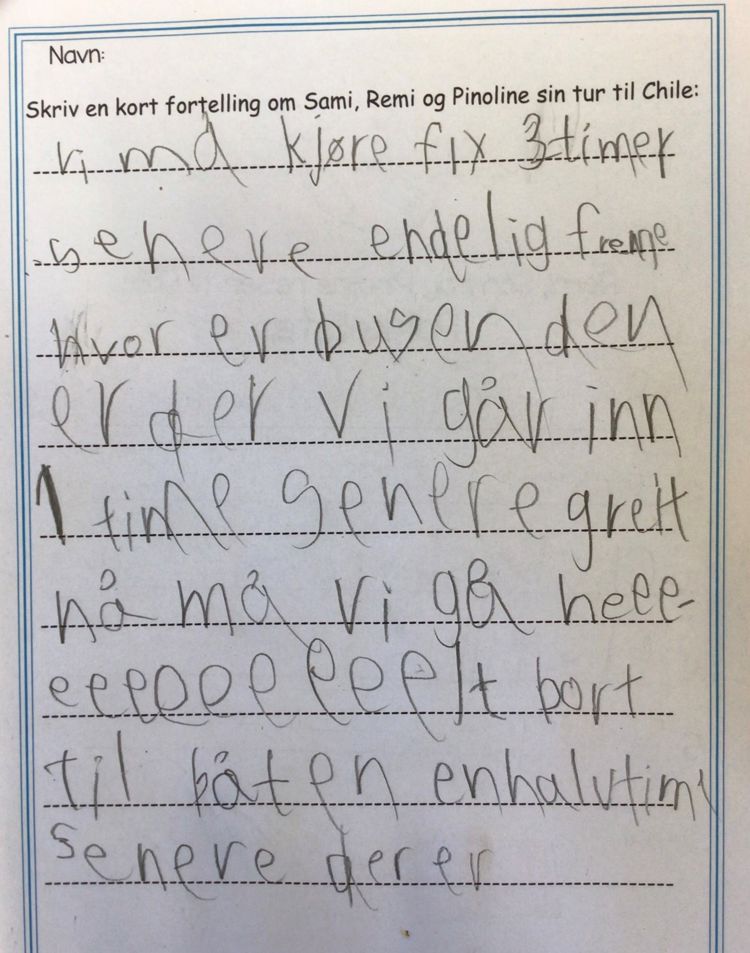 Navn:
Skriv en kort fortelling om Sami, Remi og Pinoline sin tur til Chile:
vi må kjøre fix 3 timer
senere endelig freme
hvor er busen den
er der vi går inn
1 time senere greit
nå må vi gå heee-
eeeeeeeeeelt bort
til båten enhalvtim
senere der er